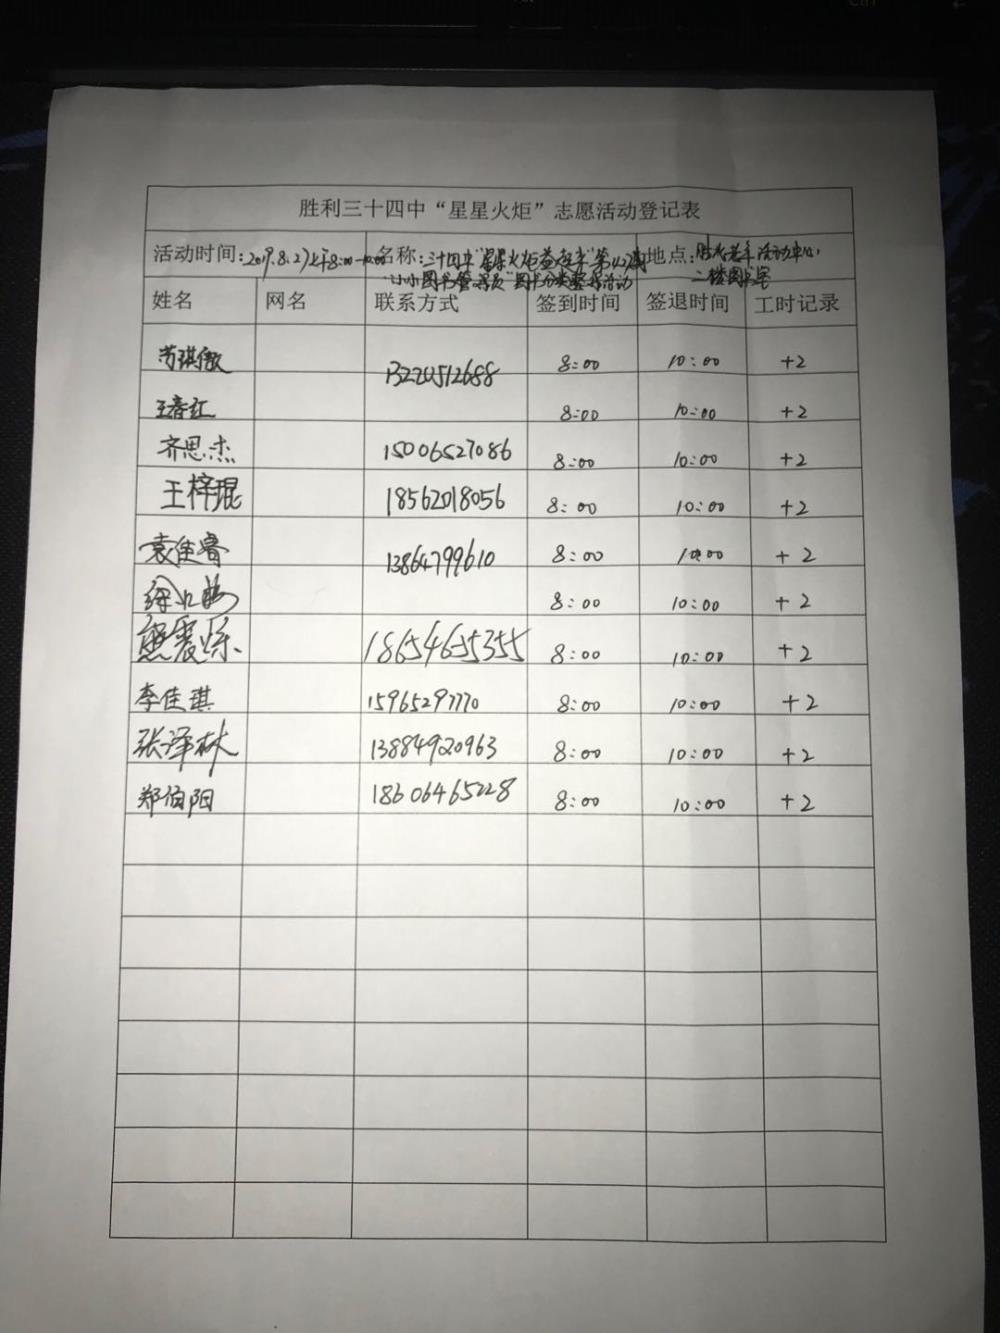 胜利三十四中“星星火炬”志愿活动登记表
活动时间:2017.8.27上午8:00-10:00 名称:三十四中“星星火炬益起来”第42期 地点:胜利老年活动中心,
“小小图书管理员”图书分类整理活动 二楼图书室
姓名 网名 联系方式 签到时间 签退时间 工时记录
13220512688 8:00 10:00 +2
王春红 8:00 10:00 +2
齐思杰 15006527086 8:00 10:00 +2
王梓琨 18562018056 8:00 10:00 +2
袁佳睿 13864799610 8:00 10:00 +2
8:00 10:00 +2
熊震烁 18654655355 8:00 10:00 +2
李佳琪 15965297770 8:00 10:00 +2
张泽林 13884920963 8:00 10:00 +2
郑伯阳 18606465228 8:00 10:00 +2